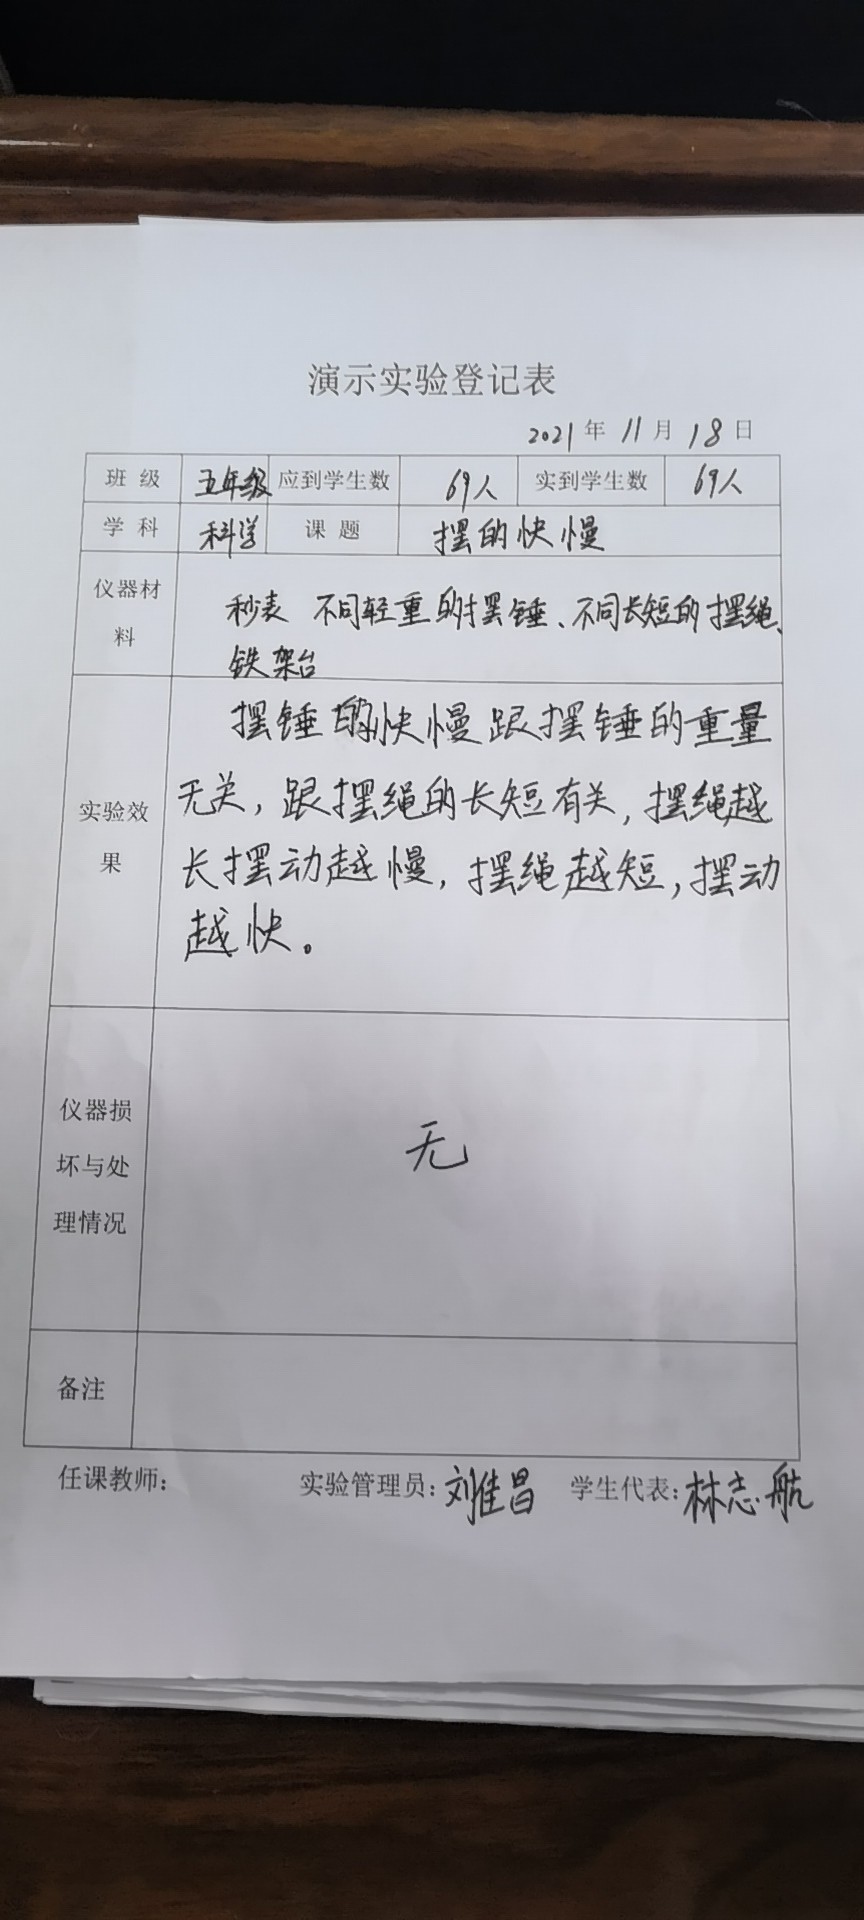 演示实验登记表
2021年11月18日
班 级 五年级 应到学生数 69人 实到学生数 69人
学 科 科学 课 题 摆的快慢
仪器材
料
秒表 不同轻重的摆锤、不同长短的摆绳、
铁架台
实验效
果
摆锤的快慢跟摆锤的重量
无关，跟摆绳的长短有关，摆绳越
长摆动越慢，摆绳越短，摆动
越快。
仪器损
坏与处
理情况
无
备注
任课教师： 实验管理员：刘佳昌 学生代表：林志航